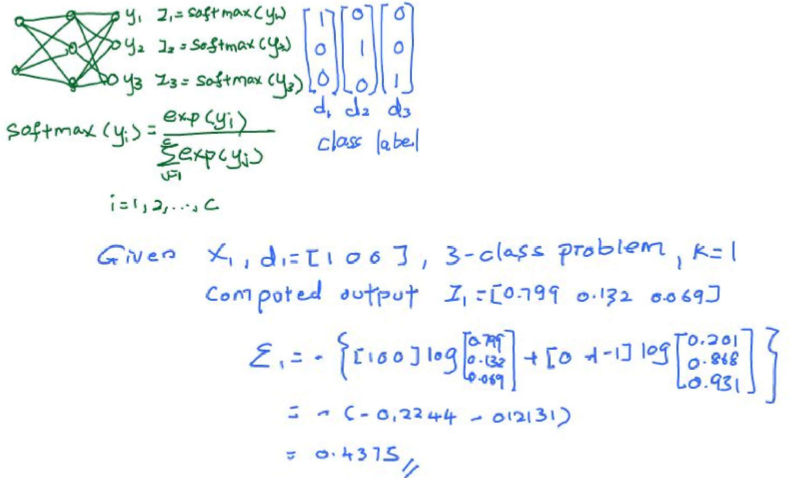 y₁ Z₁ = softmax(y₁)
y₂ Z₂ = softmax(y₂)
y₃ Z₃ = softmax(y₃)
[1 0 0] [0 1 0] [0 0 1]
d₁ d₂ d₃
class label
softmax(yᵢ) = exp(yᵢ) / Σ_{j=1}^{c} exp(yⱼ)
i=1,2,...,c
Given X₁, d₁=[1 0 0], 3-class problem, K=1
Computed output Z₁=[0.799 0.132 0.069]
Σ₁ = - {[1 0 0] log [0.799 0.132 0.069] + [0 1 1] log [0.201 0.868 0.931]}
= - (-0.2244 - 0.2131)
= 0.4375 //